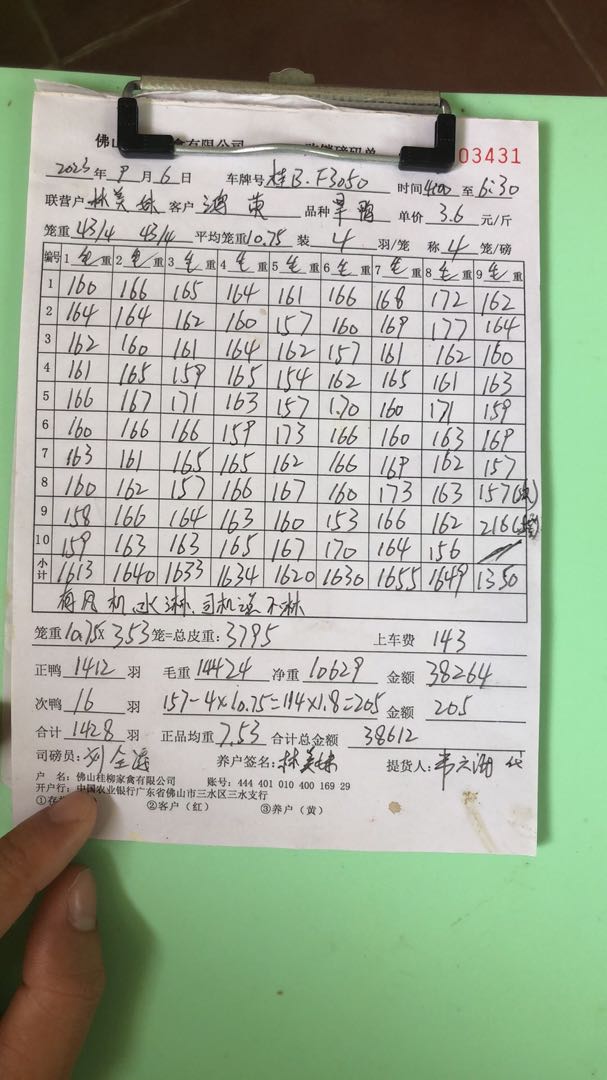 佛山 禽有限公司 购销磅码单 03431
2023年 9月6日 车牌号 桂B.F3050 时间 4:00 至 6:30
联营户 林美妹 客户 鸿 品种 旱鸭 单价 3.6 元/斤
笼重 43/4 43/4 平均笼重10.75 装 4 羽/笼 称 4 笼/磅
编号 1 毛重 2 毛重 3 毛重 4 毛重 5 毛重 6 毛重 7 毛重 8 毛重 9 毛重
1 160 166 165 164 161 166 168 172 162
2 164 164 162 160 157 160 169 177 164
3 162 160 161 164 162 157 161 162 160
4 161 165 159 165 154 162 165 161 163
5 166 167 171 163 157 170 160 171 159
6 160 166 166 159 173 166 160 163 169
7 163 161 165 165 162 166 169 162 157
8 160 162 157 166 167 160 173 163 157
9 158 166 164 163 160 153 166 162 216
10 159 163 163 165 167 170 164 156
小计 1613 1640 1633 1634 1620 1630 1655 1649 1350
有风机,水淋.司机送不淋
笼重10.75×353笼=总皮重:3795 上车费 143
正鸭 1412 羽 毛重 14424 净重 10629 金额 38264
次鸭 16 羽 157-4×10.75=114×1.8=205 金额 205
合计 1428 羽 正品均重 7.53 合计总金额 38612
司磅员:刘全 养户签名:林美妹 提货人:韦 代
户 名:佛山桂柳家禽有限公司 账号:444 401 010 400 169 29
开户行:中国农业银行广东省佛山市三水区三水支行
①存 ②客户(红) ③养户(黄)